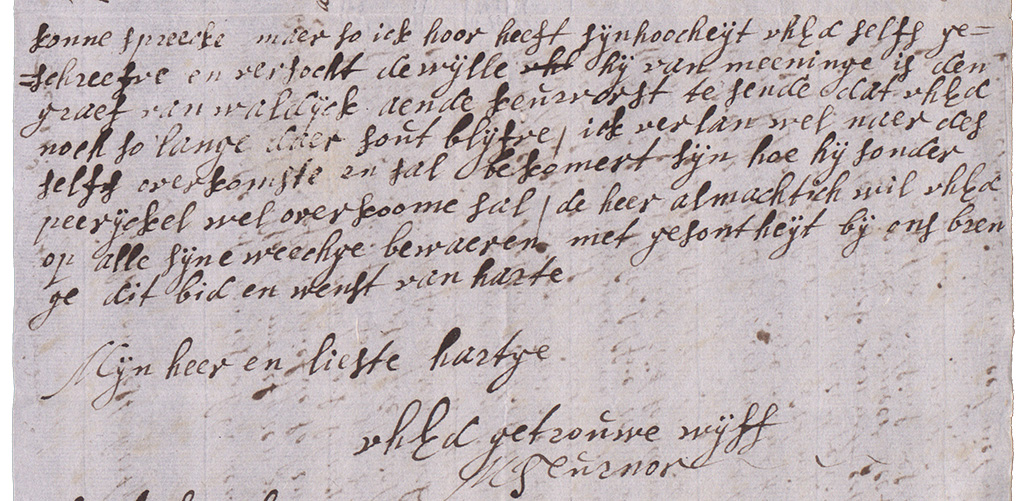 konne spreecke maer so ick hoor heeft sijnhoocheijt vhEd selfs ge=
=schreefve en versocht dewijlle vhE hij van meeninge is den
graef van waldijck aende keurvorst te sende dat vhEd
noch so lange daer sout blijfve / ick verlan wel naer des
selfs overkomste en sal bekomert sijn hoe hij sonder
peerijckel wel overkoome sal / de heer almachtich wil vhEd
op alle sijne weechge bewaeren met gesontheijt bij ons bren
ge dit bid en wenst van harte
Mijn heer en liefste hartge
vhEd getrouwe wijff